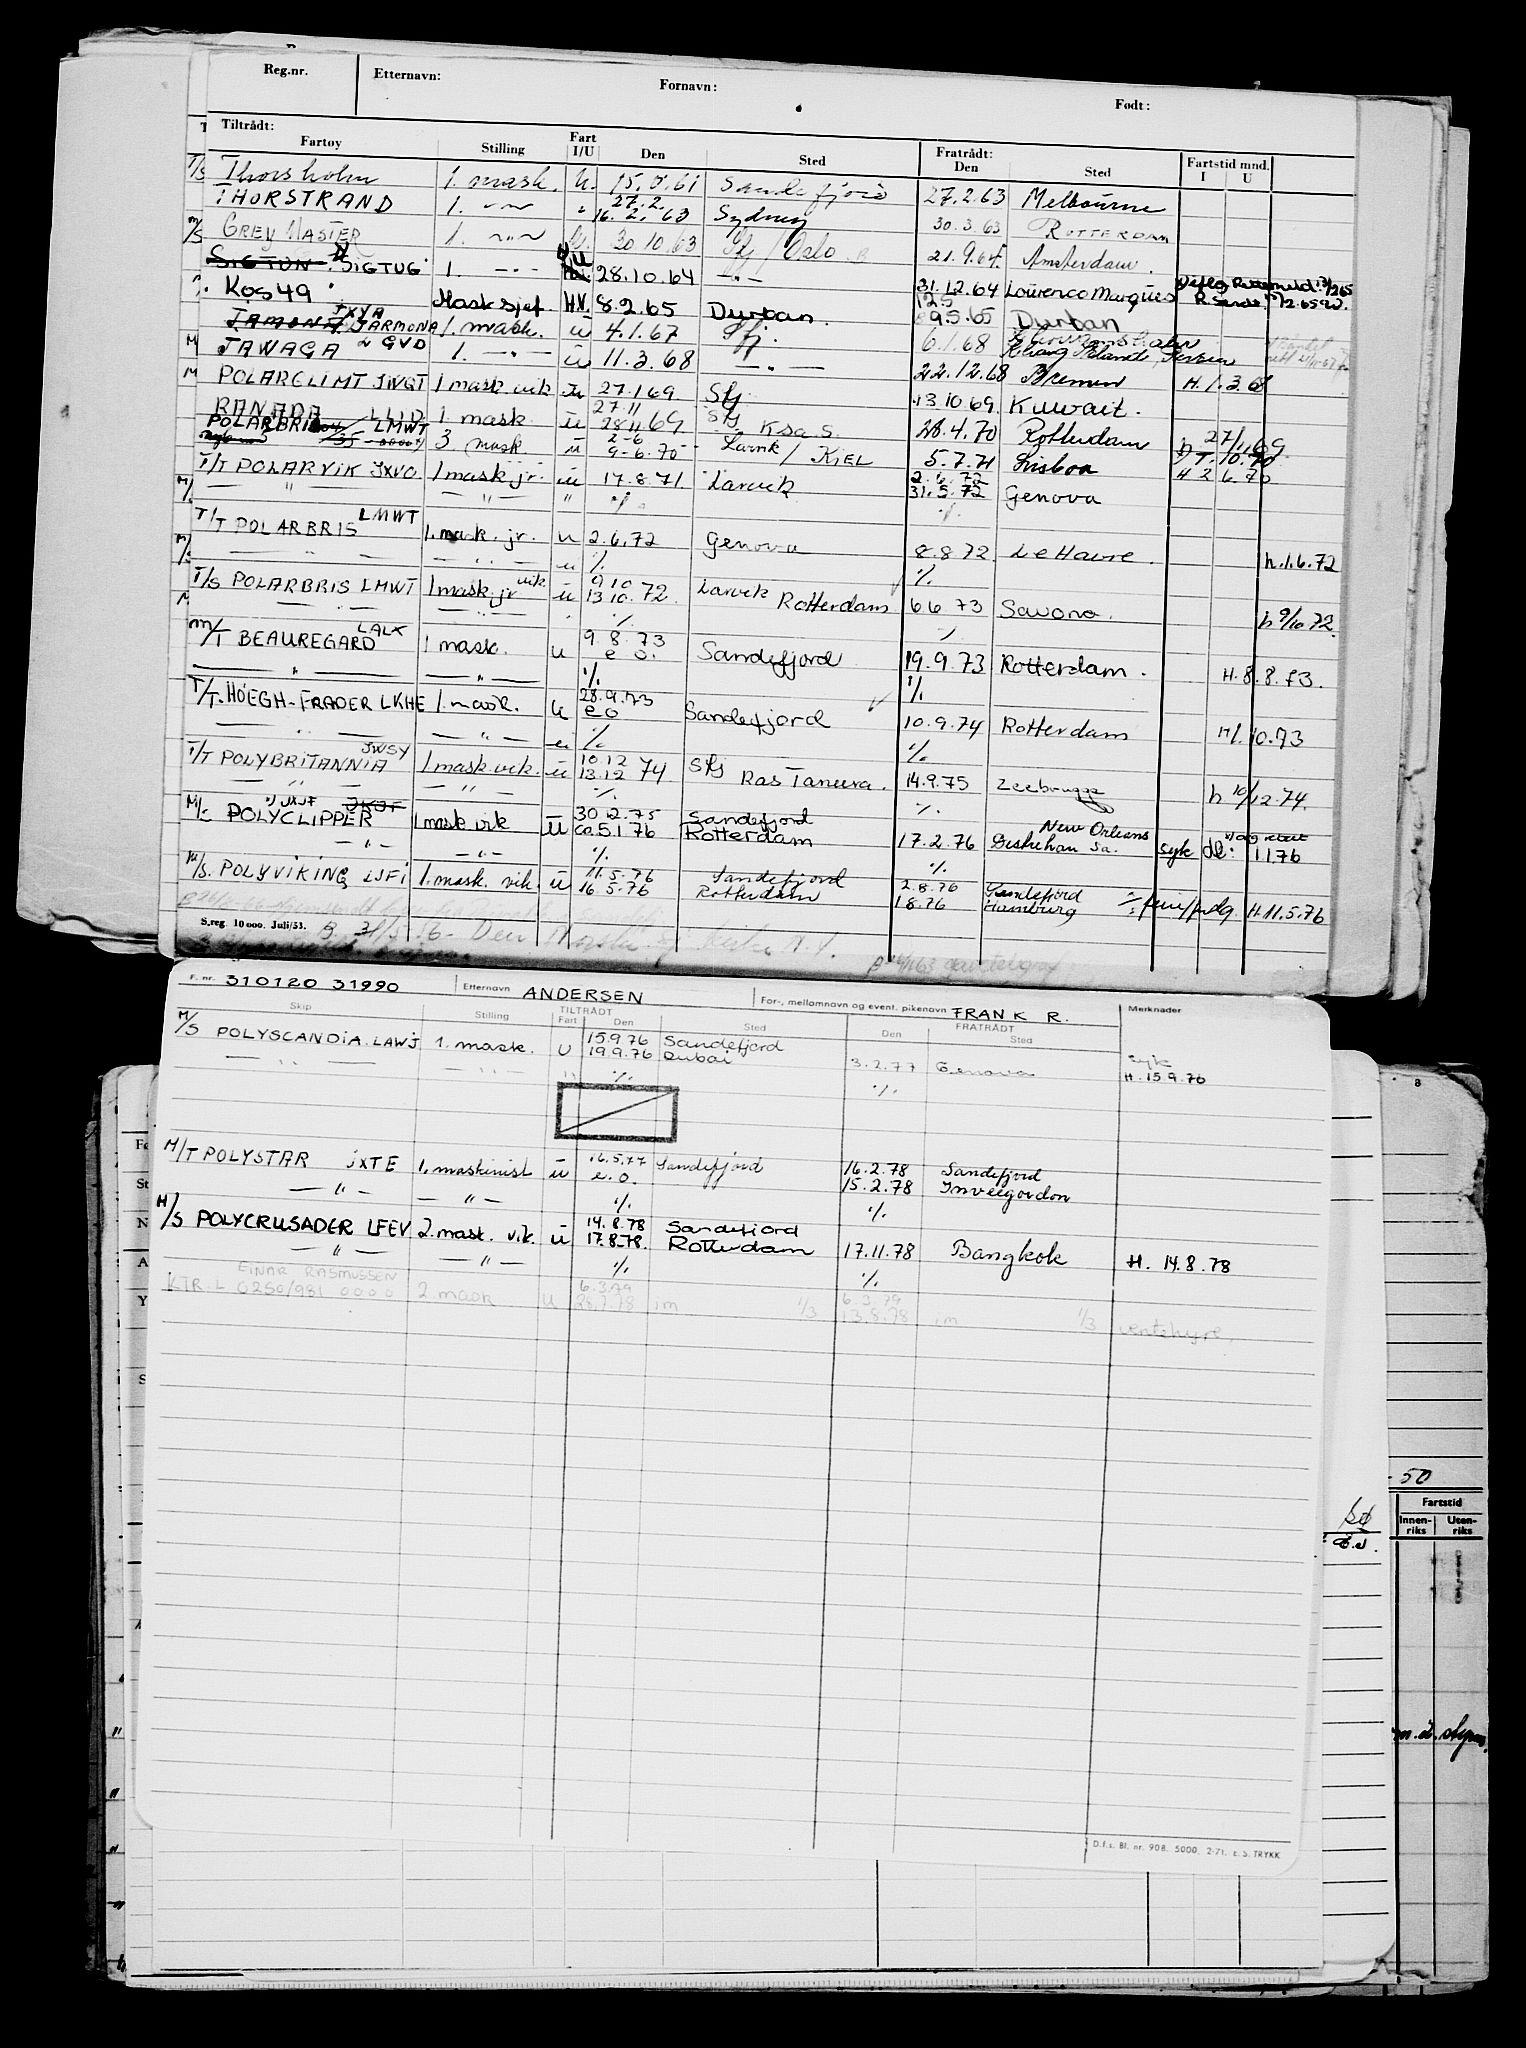 Reg.nr. Etternavn: Fornavn: Født:
Tiltrådt: Fratrådt: Fartstid mnd.
Fartøy Stilling Fart I/U Den Sted Den Sted I U
T/S Thorsholm 1. mask. U. 15. .61 Sandefjord 27.2.63 Melbourne
THORSTRAND 1. -"- " 27.2. 16.2.63 Sydney 30.3.63 ROTTERDAM
M/S GREY MASTER 1. -"- U. 30.10.63 Sfj / Oslo 21.9.64. Amsterdam.
SIGTUN SIGTUG 1. -"- U 28.10.64 -"- 31.12.64 Lourenco Marques
KOS 49 Mask sjef. H.V. 8.2.65 Durban. 9.5.65 Durban
JXYA
JAMONA JARMONA 1. mask. ü 4.1.67 Sfj. 6.1.68
M JAWAGA LGVD 1. -"- ü 11.3.68 -"- 22.12.68 Bremen H.1.3.68
M POLARCLIMT JWGT 1 mask vik ü 27.1 69 Sfj 13.10.69. Kuwait.
RANADA LLID 1. mask ü 27.11 28.11 69 Sfj K.s.a.s. 28.4.70 Rotterdam h 27/11.69
POLARBRIS LMWT 3. mask ü 2-6 9-6.70 Larvik / KIEL 5.7.71 Lisboa H 2 6.70
T/T POLARVIK JXVO 1 mask jr. ü 17.8.71. Larvik 2.6.72 31.5.72 Genova
M/ — " — — " — " ./. ./.
T/T POLARBRIS LMWT 1. mask. jr. u 2.6.72 Genova 8.8.72. Le Havre. h.1.6.72
M/ — " — — " — u ./. ./.
T/S POLARBRIS LMWT 1 mask. jr vik. ü 9.10 13.10.72. Larvik Rotterdam 6.6.73 Savona. h 9/10.72.
M — " — — " — ./. ./.
M/T BEAUREGARD LALX 1 mask. u 9.8.73 e.o. Sandefjord 19.9.73 Rotterdam. H.8.8.73.
— " — — " — ./. ./.
T/T. HÖEGH-TRADER LKHE 1. mask. u 28.9.73 e o Sandefjord 10.9.74 Rotterdam H/1.10.73
— " — — " — u ./. ./.
T/T POLYBRITANNIA JWSY 1 mask vik. ü 10.12 13.12 74 Sfj Ras Tanura. 14.9.75 Zeebrugge h 10/12.74.
— " — — " — ü ./. ./.
M/ POLYCLIPPER JXJF 1 mask vik ü 30.12.75 Sandefjord
ca 5.1.76 Rotterdam 17.2.76 New Orleans sa. syk dl: 1.1.76
— " — — " — ./. ./.
M/S. POLYVIKING LJFI 1. mask. vik. ü 11.5.76 Sandefjord 2.8.76 Sandefjord
16.5.76 Rotterdam 1.8.76 Hamburg H.11.5.76
S.reg. 10 000. Juli/53.
F. nr. 310120 31990 Etternavn ANDERSEN For-, mellomnavn og event. pikenavn FRANK R. Merknader
TILTRÅDT FRATRÅDT
Skip Stilling Fart Den Sted Den Sted
M/S POLYSCANDIA. LAWJ 1. mask. U 15.9.76 Sandefjord
19.9.76 Dubai 3.2.77 Genova syk
— " — — " — " ./. ./. H. 15.9.76
M/T POLYSTAR JXTE 1. maskinist ü 16.5.77 Sandefjord 16.2.78 Sandefjord
e.o. 15.2.78 Invergordon
— " — — " — ./. ./.
M/S POLYCRUSADER LFEV 2. mask. vik. ü 14.8.78 Sandefjord
17.8.78. Rotterdam 17.11.78 Bangkok H. 14.8.78
— " — — " — ./. ./.
EINAR RASMUSSEN 6.3.79 6.3.79
KTR.L 6250/981 0000 2. mask u 28.7.78 im 1/3 13.8.78 im 1/3 ventehyre.
D.f.s. Bl. nr. 908. 5000. 2-71. E.S. TRYKK
8
- 50
Fartstid
Innen-riks Uten-riks